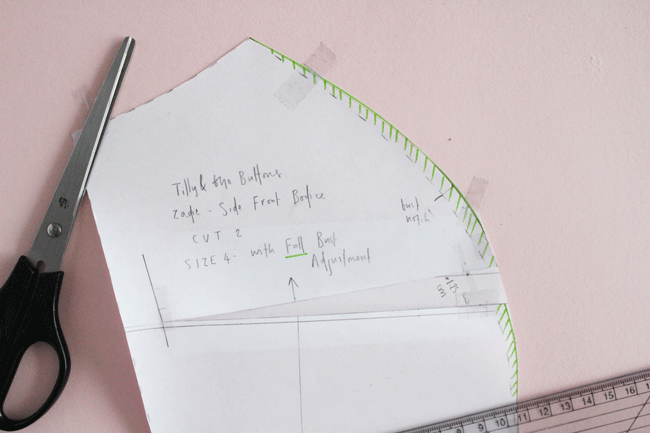 Tilly & the Buttons
Zadie - Side Front Bodice
CUT 2
SIZE 4 - with Full Bust
Adjustment
bust
notch
9 10 11 12 13 14 15 16